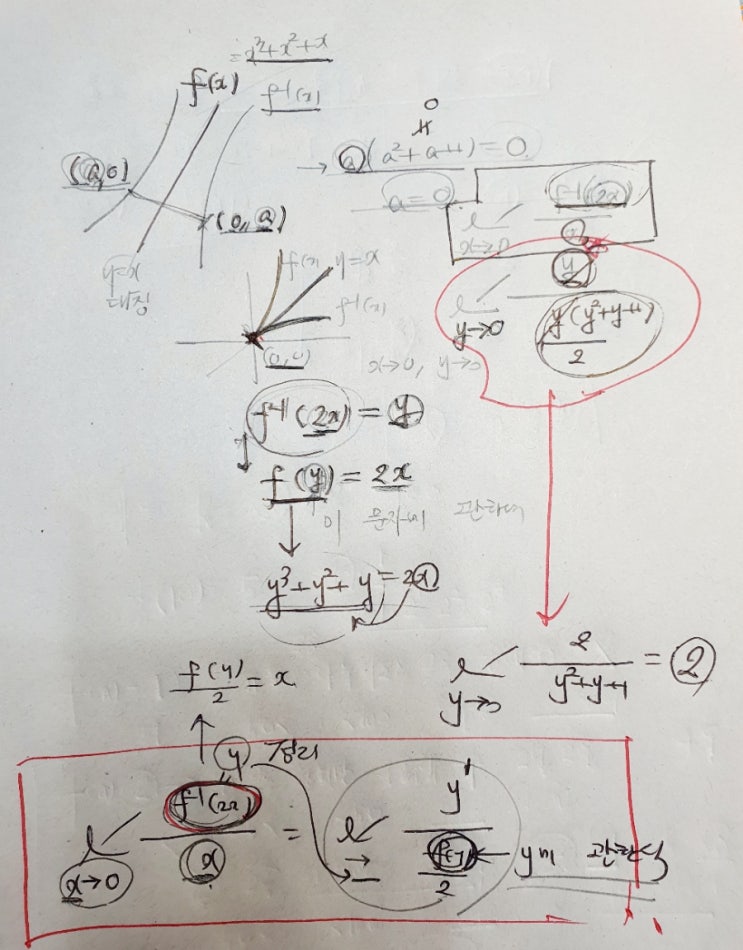 = x³+x²+x
f(x)
f⁻¹(x)
(a,0)
(0,a)
y=x
대칭
→ a(a²+a+1)=0
a=0
x→0
f⁻¹(2x)
x
f(x) y=x
f⁻¹(x)
(0,0)
x→0, y→0
y→0
y
y(y²+y+1)
2
f⁻¹(2x) = y
f(y) = 2x
이 문자에 관하여
y³+y²+y = 2x
f(y)/2 = x
y→0 2/(y²+y+1) = 2
y 정리
x→0 f⁻¹(2x)/x = y/(f(y)/2) ← y에 관한식